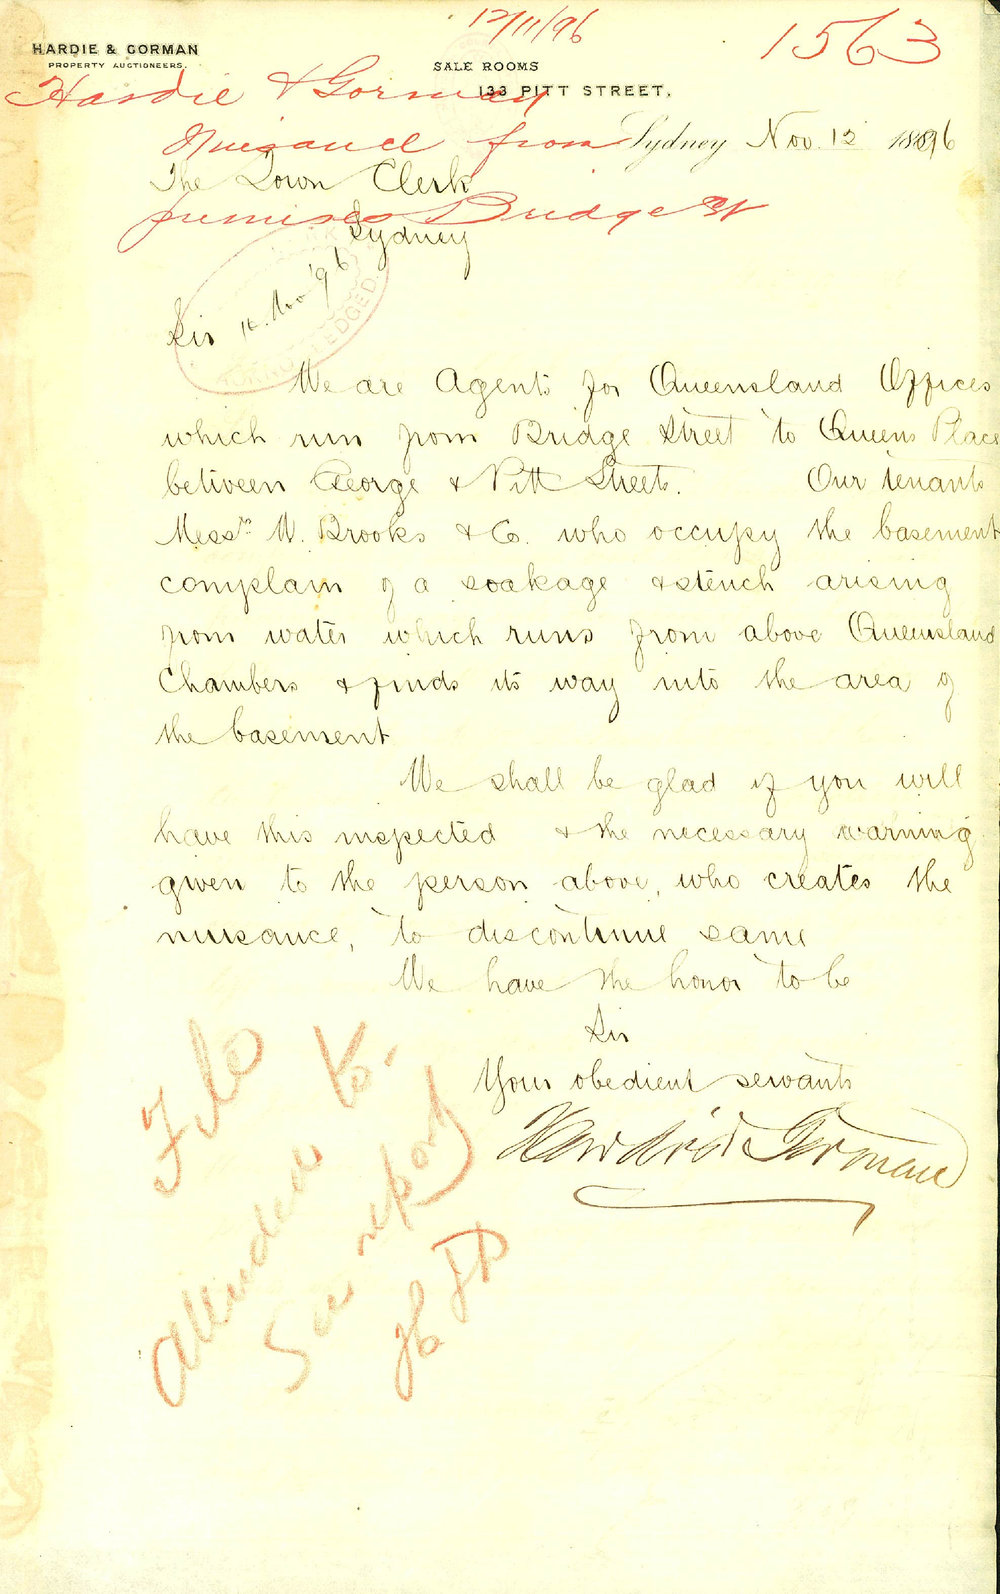 12/11/96
1563
HARDIE & GORMAN
PROPERTY AUCTIONEERS.
SALE ROOMS
133 PITT STREET.
Hardie & Gorman
Nuisance from
premises Bridge St
Sydney Nov. 12 1896
The Town Clerk
Sydney
Nov 96
ACKNOWLEDGED.
Sir
We are Agents for Queensland Offices
which run from Bridge Street to Queens Place
between George & Pitt Streets. Our tenants
Messrs. W. Brooks & Co. who occupy the basement
complain of a soakage & stench arising
from water which runs from above Queensland
Chambers & finds its way into the area of
the basement
We shall be glad if you will
have this inspected & the necessary warning
given to the person above, who creates the
nuisance, to discontinue same
We have the honor to be
Sir
Your obedient servants
Hardie & Gorman
File
Attended to.
See report